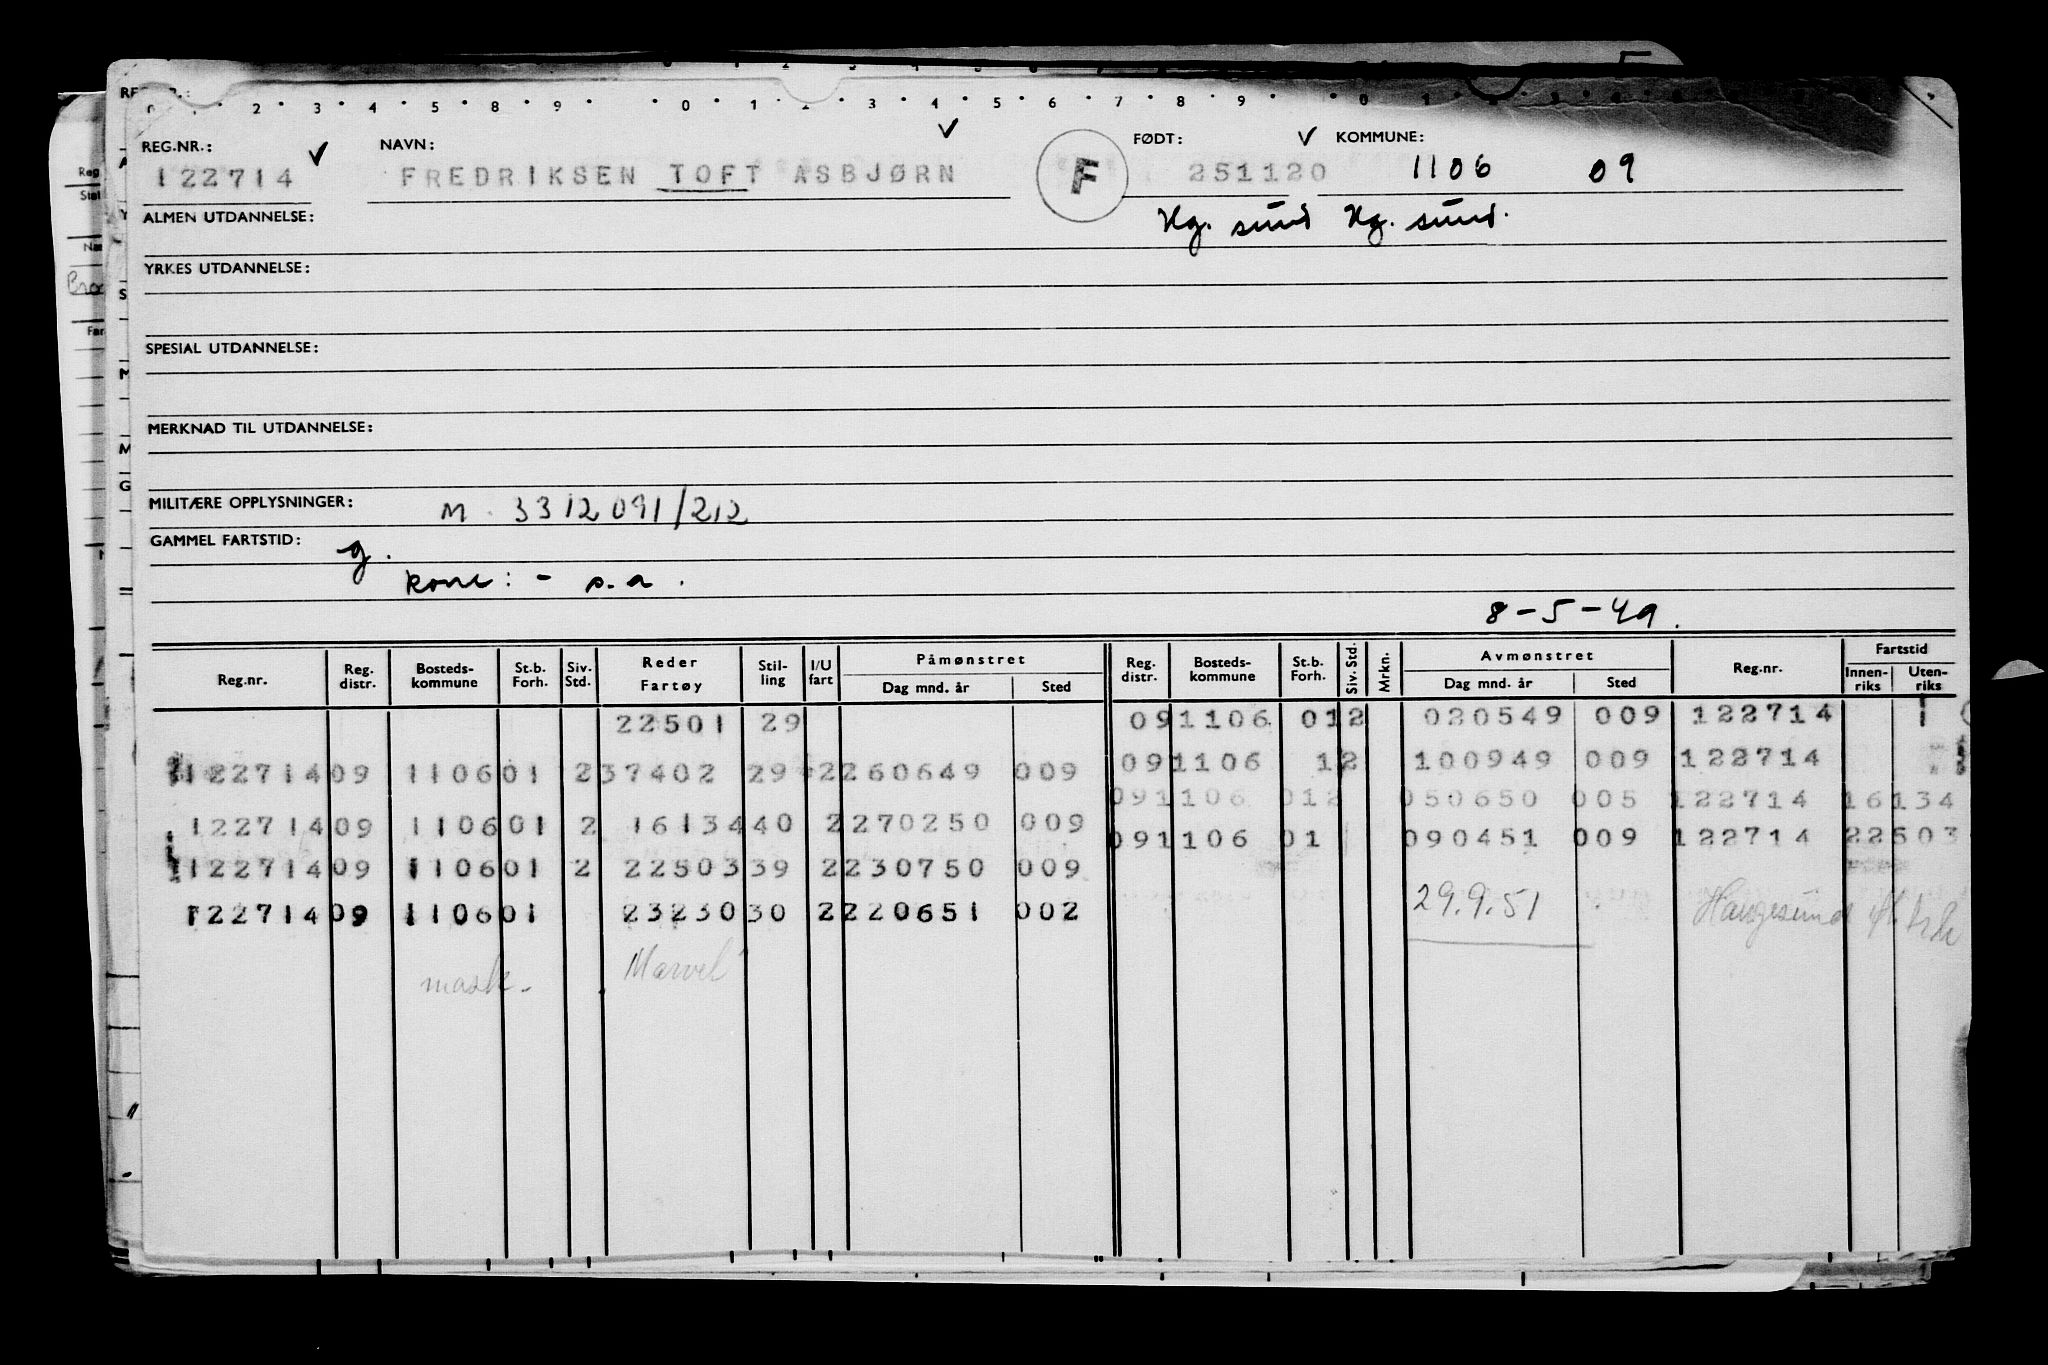 2 3 4 5 8 9 0 1 2 3 4 5 6 7 8 9 0
REG.NR.: NAVN: FØDT: KOMMUNE:
122714 FREDRIKSEN TOFT ASBJØRN F 251120 1106 09
ALMEN UTDANNELSE: Hg. sund Hg. sund.
YRKES UTDANNELSE:
SPESIAL UTDANNELSE:
MERKNAD TIL UTDANNELSE:
MILITÆRE OPPLYSNINGER: M. 3312091/212
GAMMEL FARTSTID: g.
kone: - s.a.
8-5-49.
Reg.nr. Reg. distr. Bosteds-kommune St.b. Forh. Siv. Std. Reder Fartøy Stil-ling I/U fart Påmønstret Dag mnd. år Sted Reg. distr. Bosteds-kommune St.b. Forh. Siv. Std. Mrkn. Avmønstret Dag mnd. år Sted Reg.nr. Fartstid Innen-riks Uten-riks
22501 29 091106 012 020549 009 122714 1
122714 09 1106 01 2 37402 29 2 260649 009 091106 12 100949 009 122714
091106 012 050650 005 122714 16134
122714 09 1106 01 2 16134 40 2 270250 009 091106 01 090451 009 122714 22503
122714 09 1106 01 2 22503 39 2 230750 009
122714 09 1106 01 23230 30 2 220651 002 29.9.51 Haugesund
mask. Marvel